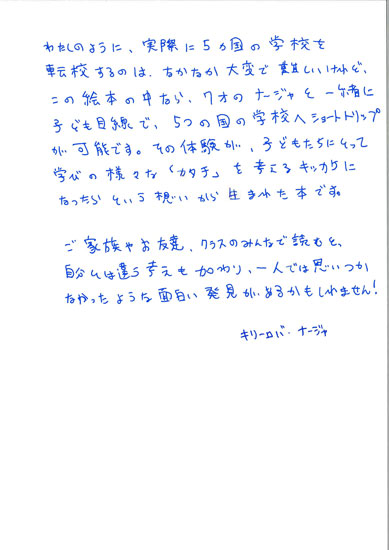 わたしのように、実際に5カ国の学校を
転校するのは、なかなか大変で難しいけれど、
この絵本の中なら、7才のナージャと一緒に
子ども目線で、5つの国の学校へショートトリップ
が可能です。その体験が、子どもたちにとって
学びの様々な「カタチ」を考えるキッカケに
なったらという想いから生まれた本です。
ご家族やお友達、クラスのみんなで読むと、
自分とは違う考えも加わり、一人では思いつか
なかったような面白い発見があるかもしれません!
キリーロバ・ナージャ